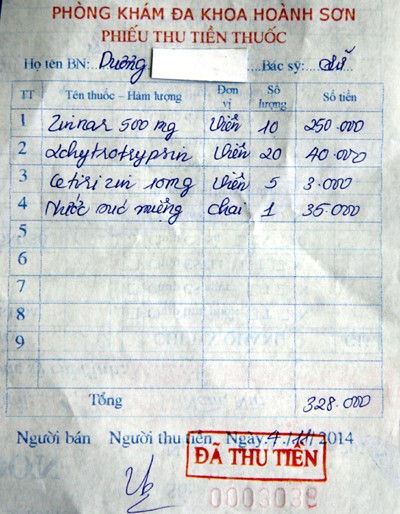 PHÒNG KHÁM ĐA KHOA HOÀNH SƠN
PHIẾU THU TIỀN THUỐC
Họ tên BN: Dương Bác sỹ:
TT Tên thuốc – Hàm lượng Đơn vị Số lượng Số tiền
1 Zinnat 500 mg Viên 10 250.000
2 αchytrotrypsin Viên 20 40.000
3 Cetirizin 10mg Viên 5 3.000
4 Nước súc miệng Chai 1 35.000
5
6
7
8
9
Tổng 328.000
Người bán Người thu tiền Ngày 4/11/2014
ĐÃ THU TIỀN
0003039